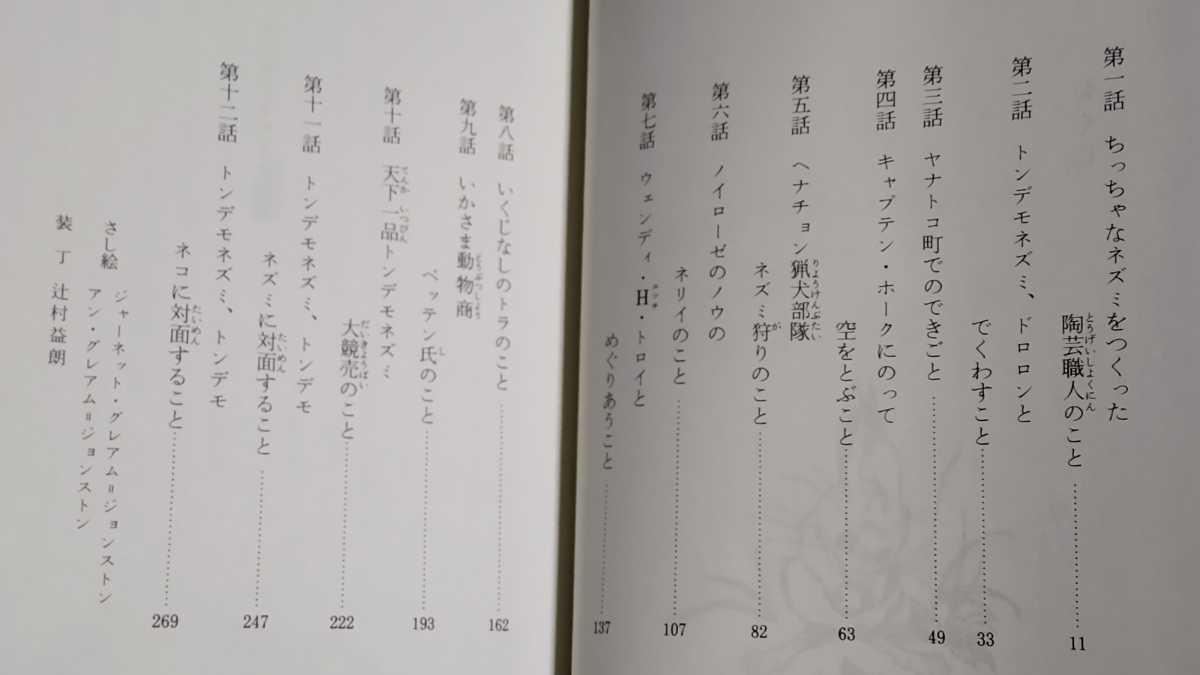 第一話 ちっちゃなネズミをつくった
陶芸職人のこと………………11
第二話 トンデモネズミ、ドロロンと
でくわすこと………………33
第三話 ヤナトコ町でのできごと………………49
第四話 キャプテン・ホークにのって
空をとぶこと………………63
第五話 ヘナチョン猟犬部隊
ネズミ狩りのこと………………82
第六話 ノイローゼのノウの
ネリイのこと………………107
第七話 ウェンディ・H・トロイと
めぐりあうこと………………137
第八話 いくじなしのトラのこと………………162
第九話 いかさま動物商
ペッテン氏のこと………………193
第十話 天下一品トンデモネズミ
大競売のこと………………222
第十一話 トンデモネズミ、トンデモ
ネズミに対面すること………………247
第十二話 トンデモネズミ、トンデモ
ネコに対面すること………………269
さし絵 ジャーネット・グレアム=ジョンストン
アン・グレアム=ジョンストン
装丁 辻村益朗